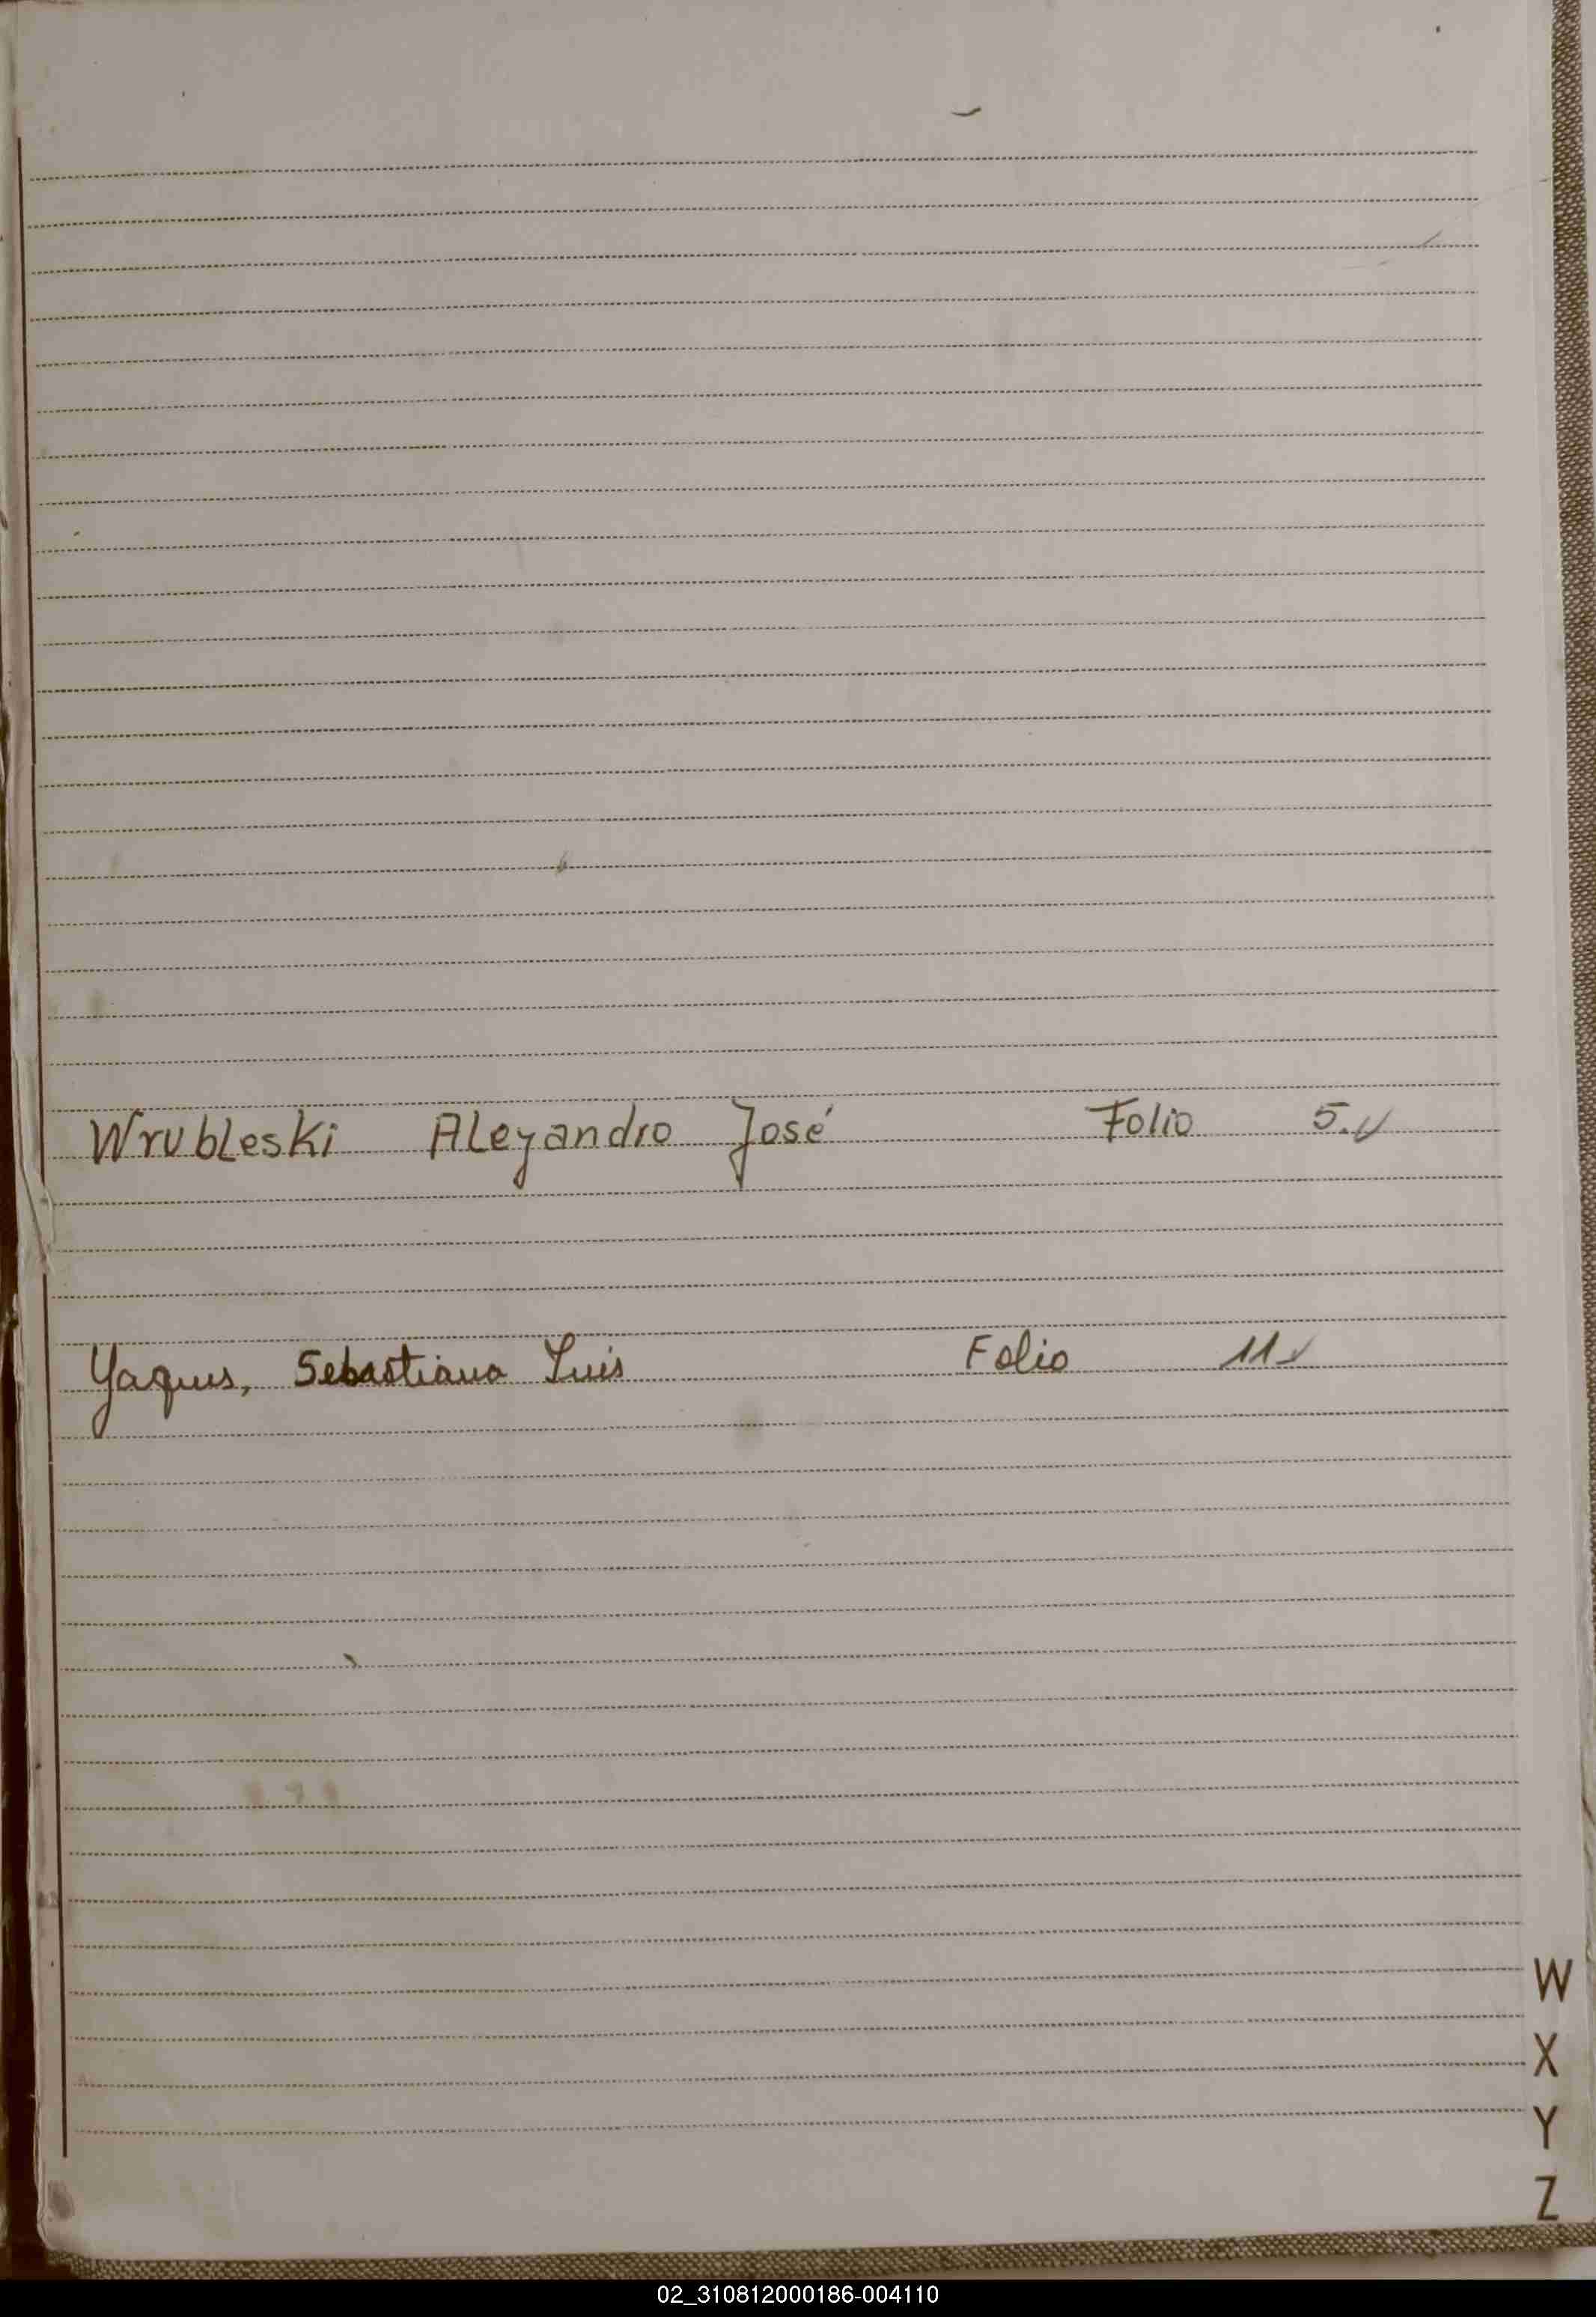 Wrubleski Alejandro José Folio 5.
Yaques, Sebastiana Luis Folio 11
W
X
Y
Z
02_310812000186-004110